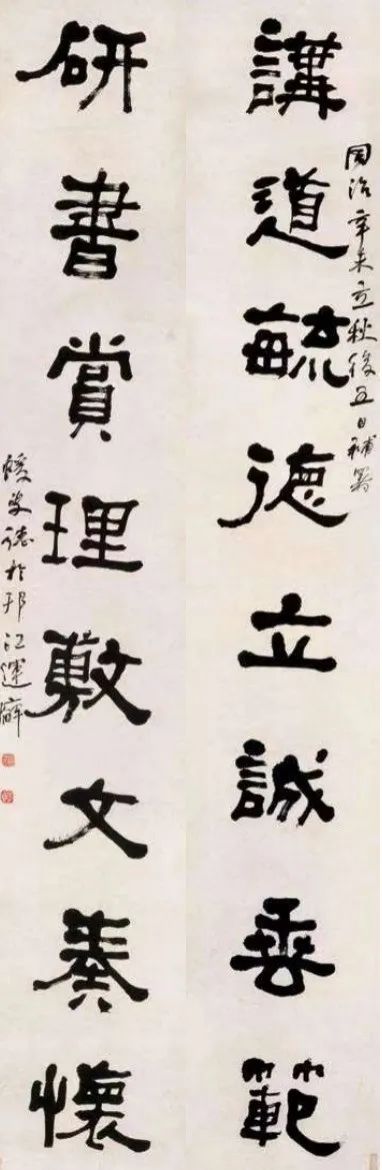 同治辛未立秋後五日補署
講道毓德立誠垂範
研書賞理敷文奏懷
蝯叟誌於邗江運廨